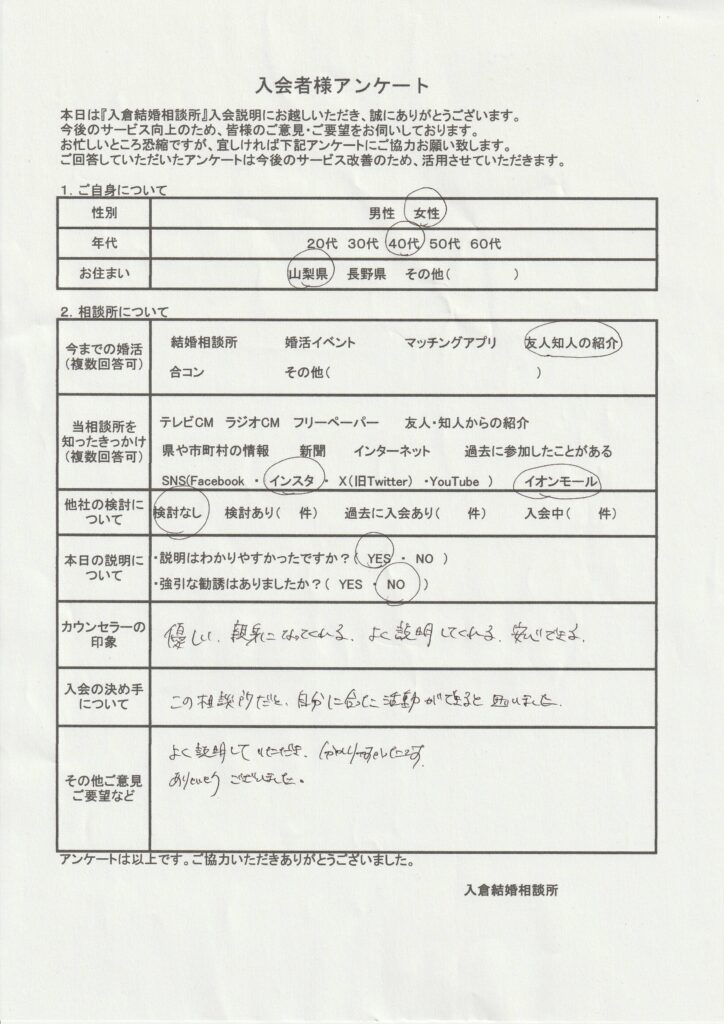 入会者様アンケート
本日は『入倉結婚相談所』入会説明にお越しいただき、誠にありがとうございます。
今後のサービス向上のため、皆様のご意見・ご要望をお伺いしております。
お忙しいところ恐縮ですが、宜しければ下記アンケートにご協力お願い致します。
ご回答していただいたアンケートは今後のサービス改善のため、活用させていただきます。
1. ご自身について
性別 男性 女性
年代 20代 30代 40代 50代 60代
お住まい 山梨県 長野県 その他( )
2. 相談所について
今までの婚活
(複数回答可)
結婚相談所 婚活イベント マッチングアプリ 友人知人の紹介
合コン その他( )
当相談所を
知ったきっかけ
(複数回答可)
テレビCM ラジオCM フリーペーパー 友人・知人からの紹介
県や市町村の情報 新聞 インターネット 過去に参加したことがある
SNS(Facebook ・ インスタ ・ X(旧Twitter) ・YouTube ) イオンモール
他社の検討に
ついて
検討なし 検討あり( 件) 過去に入会あり( 件) 入会中( 件)
本日の説明に
ついて
・説明はわかりやすかったですか?( YES ・ NO )
・強引な勧誘はありましたか?( YES ・ NO )
カウンセラーの
印象
優しい、親身になってくれる、よく説明してくれる、安心できる。
入会の決め手
について
この相談所だと、自分に合った活動ができると思いました。
その他ご意見
ご要望など
よく説明していただき、
ありがとう ございました。
アンケートは以上です。ご協力いただきありがとうございました。
入倉結婚相談所